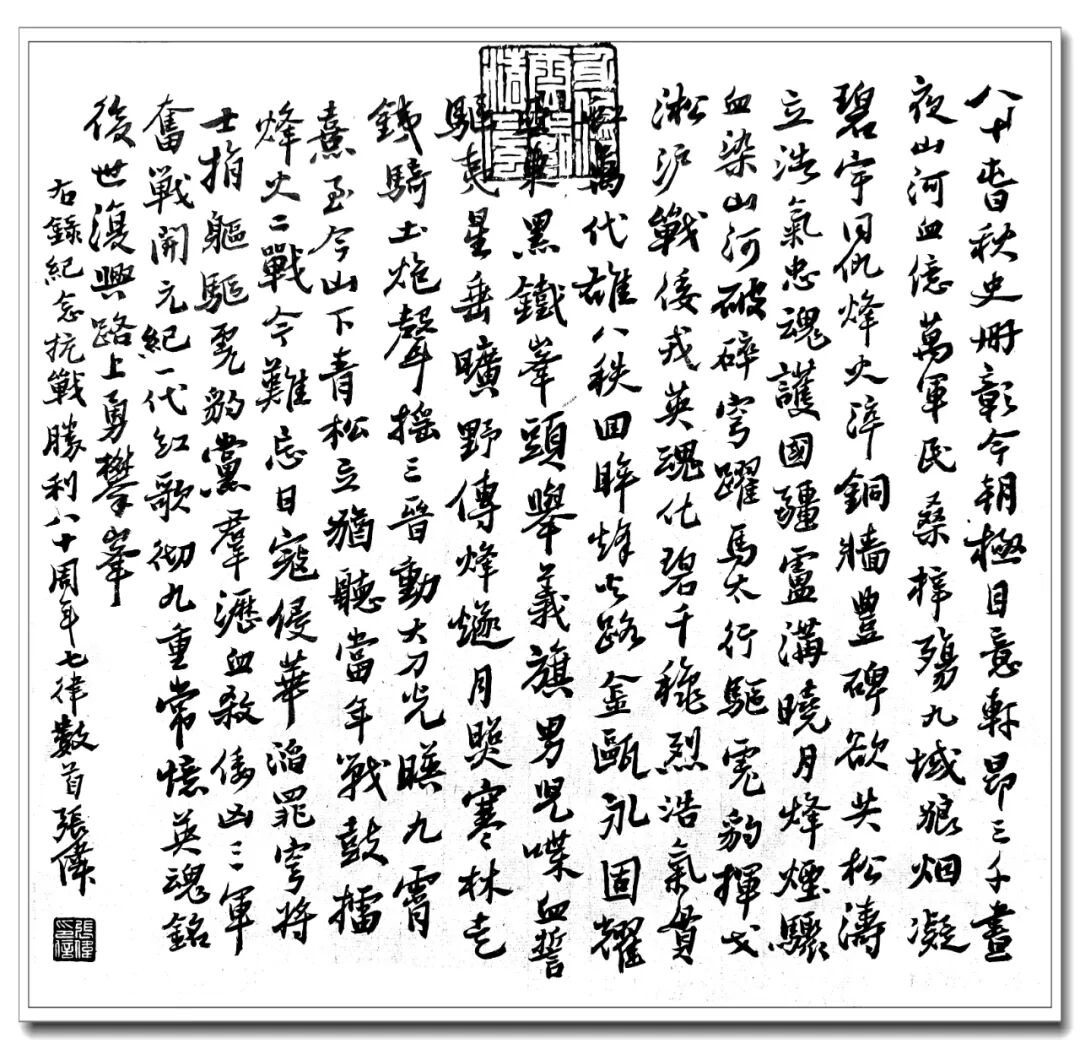 八十春秋史册彰今朝極目意軒昂三千晝
夜山河血億萬軍民桑梓殤九域狼烟凝
碧宇同仇烽火淬銅牆豐碑欲共松濤
立浩氣忠魂護國疆盧溝曉月烽煙驟
血染山河破碎穹躍馬太行驅虎豹揮戈
淞沪戰倭戎英魂化碧千秋烈浩氣貫
萬代雄八秩回眸烽火路金甌永固耀
黑鐵峯頭舉義旗男兒喋血誓
驅星垂曠野傳烽燧月照寒林走
鐵騎土炮聲摇三晉動大刀光暎九霄
熹至今山下青松立猶聽當年戰鼓擂
烽火二戰今難忘日寇侵華滔罪穹将
士捐軀驅虎豹黨羣瀝血殺倭凶三軍
奮戰開元紀一代红歌彻九重常憶英魂銘
後世復興路上勇攀峯
右錄紀念抗戰勝利八十周年七律數首張偉